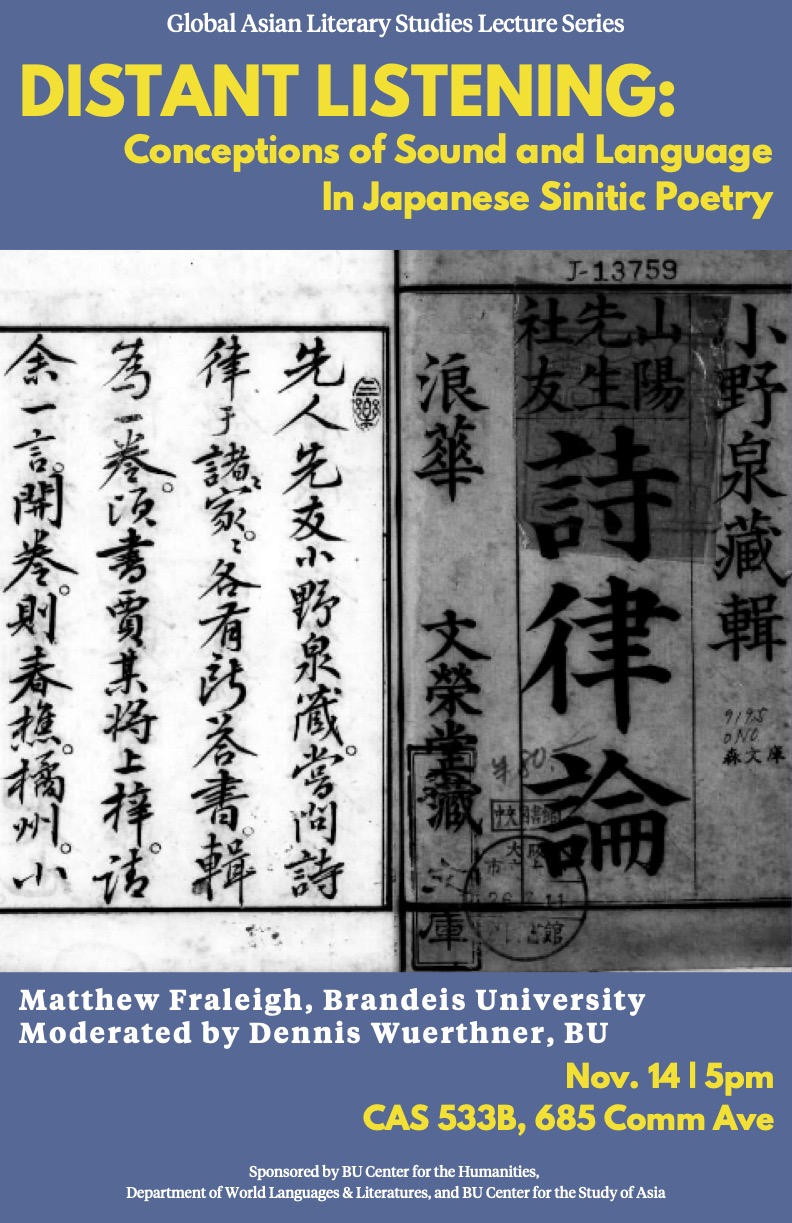 Global Asian Literary Studies Lecture Series
DISTANT LISTENING:
Conceptions of Sound and Language
In Japanese Sinitic Poetry
J-13759
小野泉藏輯
山陽
先生
社友
詩律論
浪華 文榮堂藏
9195
ONO
森文庫
先人先友小野泉藏。嘗問詩
律于諸〻家。〻各有所答書。輯
為一卷。頃書賈某将上梓。請
余一言。開卷。則春樵。橘州。小
Matthew Fraleigh, Brandeis University
Moderated by Dennis Wuerthner, BU
Nov. 14 | 5pm
CAS 533B, 685 Comm Ave
Sponsored by BU Center for the Humanities,
Department of World Languages & Literatures, and BU Center for the Study of Asia